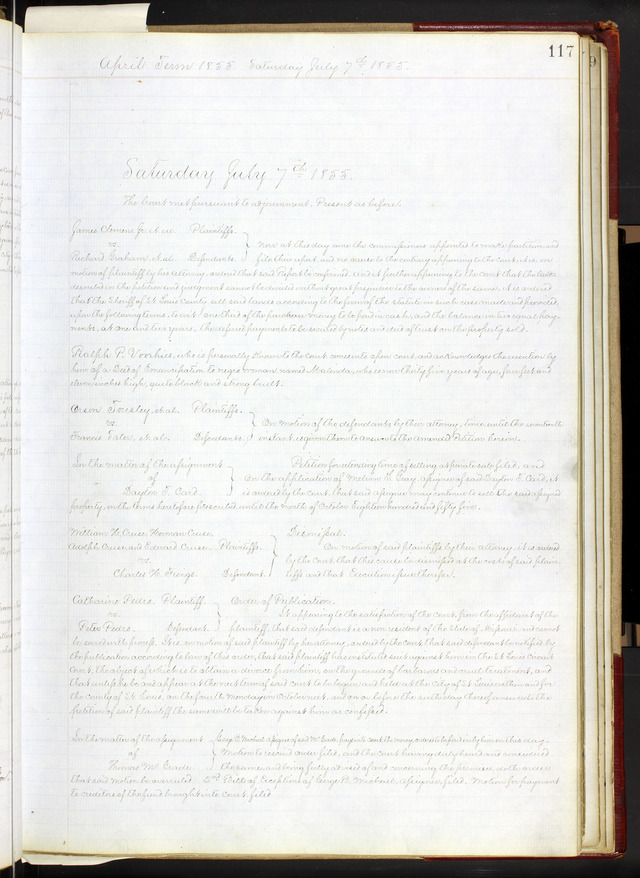 117
April Term 1855. Saturday July 7th 1855.
Saturday July 7th 1855.
The Court met pursuant to adjournment. Present as before.
James Clemens Jr. et al. Plaintiffs.
vs.
Richard Graham, et al. Defendants.
Now at this day come the commissioners appointed to make partition and
file their report, and no cause to the contrary appearing to the court, it is, on
motion of plaintiffs by his attorney, ordered that said report be confirmed. And it further appearing to the court that the lands
described in the petition and judgment cannot be divided without great prejudice to the owners of the same. It is ordered
that the Sheriff of St Louis County sell said lands according to the form of the statute in such case made and provided,
upon the following terms, to wit: one third of the purchase money to be paid in cash, and the balance in two equal pay-
ments, at one and two years. The deferred payments to be secured by notes and deed of trust on the property sold.
Ralph P. Voorhies, who is personally known to the court comes into open court and acknowledges the execution by
him of a Deed of Emancipation to negro woman named Malinda, who is now thirty five years of age, five feet and
inches high, quite black and strong built.
Orson Tousley, et al. Plaintiffs.
vs.
Francis Tater, et al. Defendants.
On motion of the defendants by their attorney, time until the
instant is given them to answer to the amended Petition herein.
In the matter of the assignment
of
Daylon T. Card.
Petition for extending time of selling at private sale filed, and
on the application of Melvin L. Gray, assignee of said Daylon T. Card, it
is ordered by the court that said assignee may continue to sell the said assigned
property, on the terms heretofore prescribed until the month of October eighteen hundred and fifty five.
William H. Cruse, Herman Cruse,
Adolph Cruse and Edward Cruse. Plaintiffs.
vs.
Charles H. Defendant.
Dismissal.
On motion of said plaintiffs by their attorney, it is ordered
by the court that this cause be dismissed at the costs of said plain-
tiffs and that Execution issue therefor.
Catharine Peters. Plaintiff.
vs.
Peter Peters. Defendant.
Order of Publication.
It appearing to the satisfaction of the court, from the affidavit of the
plaintiff, that said defendant is a non resident of the State of Missouri and cannot
be served with process. It is, on motion of said plaintiff by her attorney, ordered by the court that said defendant be notified by
the publication according to law of this order, that said plaintiff has instituted suit against him in the St Louis Circuit
Court, the object of which is to obtain a divorce from him, on the grounds of barbarous and cruel treatment, and
that unless he be and appear at the next term of said court to be begun and held at the City of St Louis within and for
the county of St Louis, on the fourth Monday in October next, and on or before the sixth day thereof answer to the
petition of said plaintiff the same will be taken against him as confessed.
In the matter of the assignment
of
Thomas Mc Grade.
George P. assignee of said Mc Grade, presents court the money ordered to be paid in by him on this day.
Motion to rescind order filed, and the court having duly heard and considered
the same, and being fully advised of and concerning the premises, doth order
that said motion be overruled. 2nd Bill of Exceptions of George P. assignee, filed. Motion for payment
to creditors of the fund brought into Court filed.